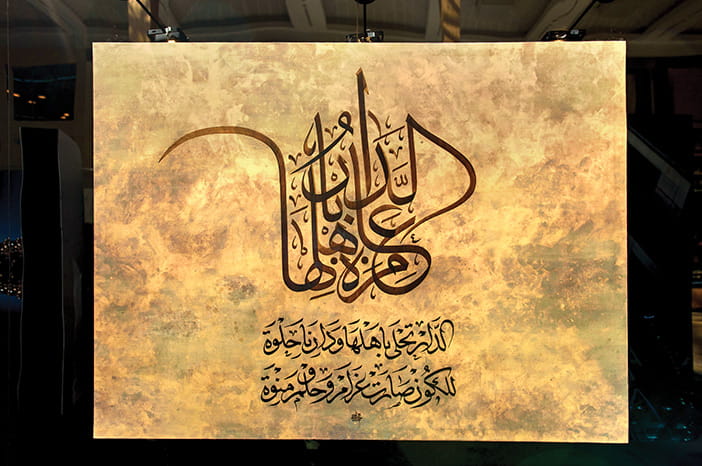 الدَّارُ عامرة باهلها
الدار تحلى باهلها ودارنا حلوة
للكون صارت غرام وحلم ومنوة